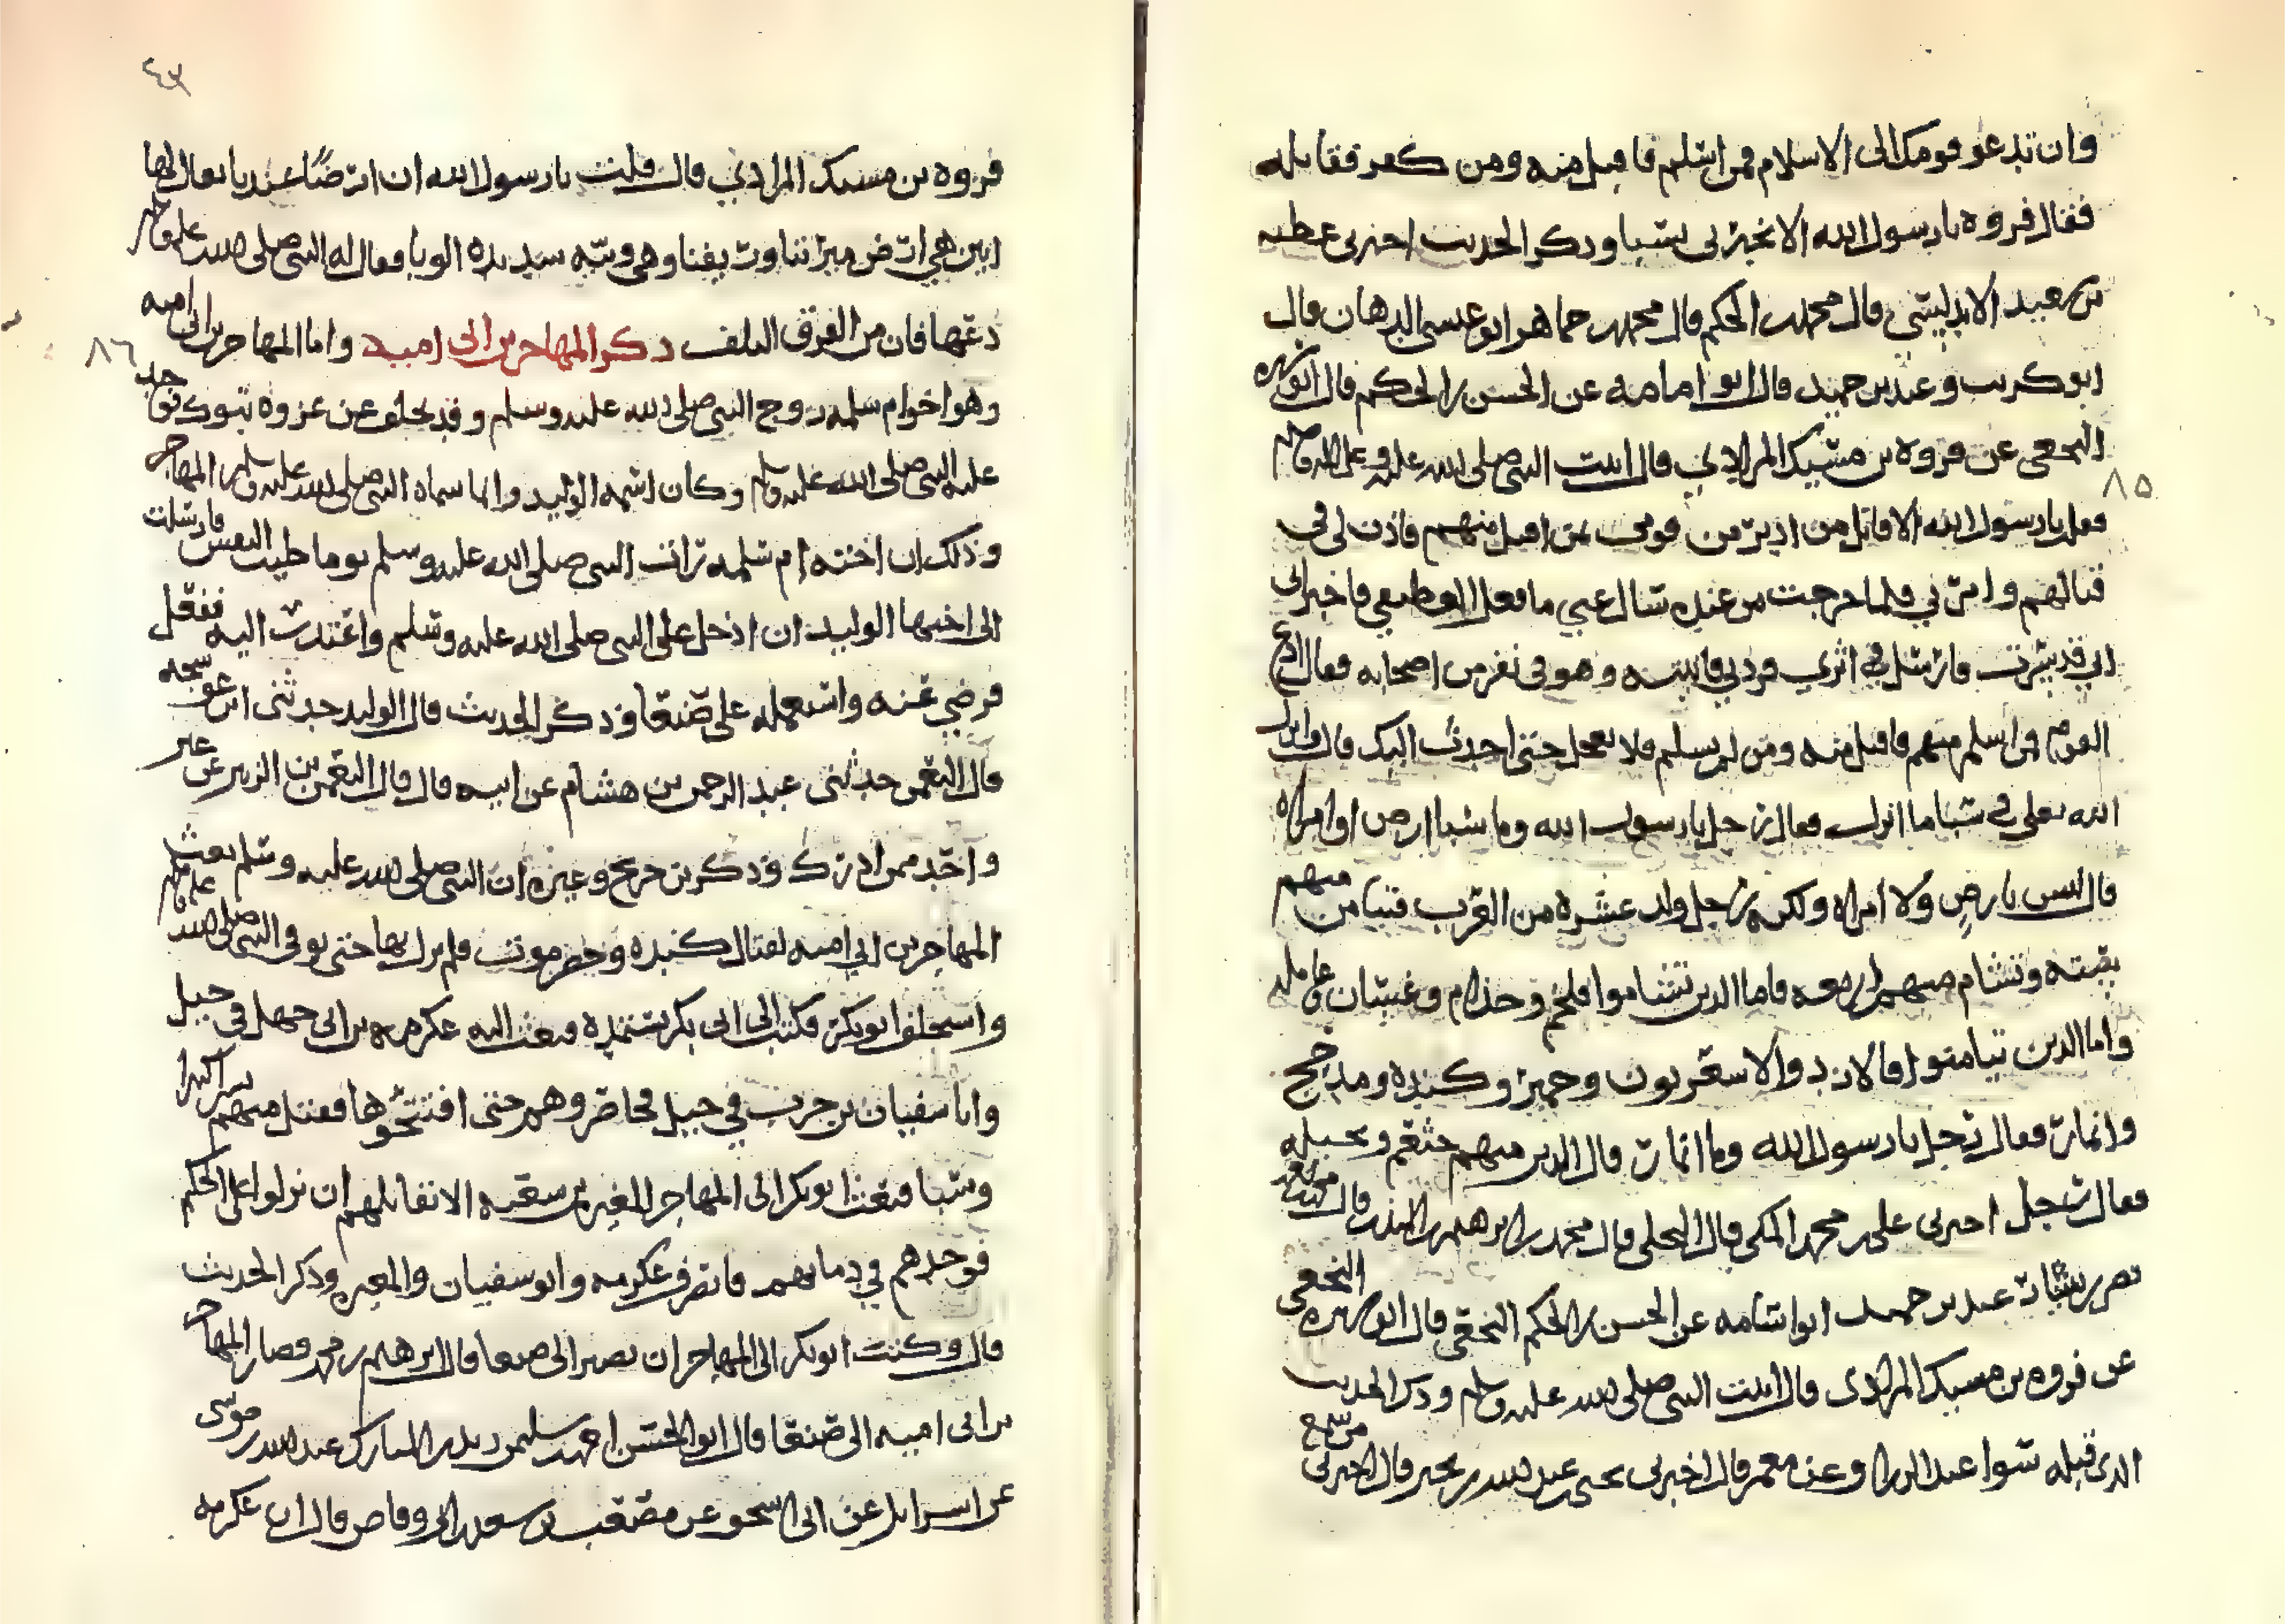 وان تدعو قومك الى الاسلام فمن اسلم فاقبل منه ومن كفر فقاتله
فقال فروه يا رسول الله الا تخبرني بسبا وذكر الحديث اخبرني عطيه
بن سعيد الاندلسي قال محمد بن الحكم قال محمد بن حماهر ابو عيسى الدهان قال
ابو كريب وعبد بن حميد قال ابو امامه عن الحسن بن الحكم قال ابو سبره
النخعي عن فروه بن مسيك المرادي قال اتيت النبي صلى الله عليه وعلى اله وسلم
٨٥
فقلت يا رسول الله الا اقاتل من ادبر من قومي بمن اقبل منهم فاذن لي في
قتالهم وامرني فلما خرجت من عنده سال عني ما فعل الغطيفي فاخبر اني
اني قد سرت فارسل في اثري فردني فاتيته وهو في نفر من اصحابه فقال ادع
القوم فمن اسلم منهم فاقبل منه ومن لم يسلم فلا تعجل حتى احدث اليك قال وانزل
الله تعلى في سبا ما انزل فقال رجل يا رسول الله وما سبا ارض او امراه
قال ليس بارض ولا امراه ولكنه رجل ولد عشره من العرب فتيامن منهم
سته وتشام منهم اربعه فاما الذين تشاموا فلخم وجذام وغسان وعامله
واما الذين تيامنوا فالازد والاشعريون وحمير وكنده ومذحج
وانمار فقال رجل يا رسول الله وما انمار قال الذين منهم خثعم وبجيله
فقال رجل اخبرني علي بن محمد المكي قال البجلي قال محمد بن ابرهيم بن المنذر قال محمد
نصر بن بشار عبد بن حميد ابو اسامه عن الحسن بن الحكم النخعي قال ابو سبره النخعي
عن فروه بن مسيك المرادي قال اتيت النبي صلى الله عليه وسلم وذكر الحديث
الذي قبله سوا عبد الرزاق وعن معمر قال اخبرني يحيى بن عبد الله بن بحير قال اخبرني من سمع
٤٣
فروه بن مسيك المرادي قال قلت يا رسول الله ان ارضا عندنا يقال لها
ابين هي ارض ميرتنا وريفنا وهي وبيه شديده الوبا فقال له النبي صلى الله عليه وسلم
دعها فان من القرف التلف ذكر المهاجر بن ابي اميه واما المهاجر بن ابي اميه
٨٦
وهو اخو ام سلمه زوج النبي صلى الله عليه وسلم وقد تخلف عن غزوه تبوك فوجد
عليه النبي صلى الله عليه وسلم وكان اسمه الوليد وانما سماه النبي صلى الله عليه وسلم المهاجر
وذلك ان اخته ام سلمه رات النبي صلى الله عليه وسلم يوما طيب النفس فارسلت
الى اخيها الوليد ان ادخل على النبي صلى الله عليه وسلم واعتذر اليه ففعل
فرضي عنه واستعمله على صنعا وذكر الحديث قال الوليد حدثني اس
قال النعمن حدثني عبد الرحمن بن هشام عن ابيه قال قال النعمن بن الزبير عن غير
واحد ممن ادرك وذكر بن جريج وغيره ان النبي صلى الله عليه وسلم بعث
المهاجر بن ابي اميه لقتال كنده وحضرموت فلم يزل بها حتى توفي النبي صلى الله عليه وسلم
واستخلف ابو بكر فكتب الى ابي بكر يستمده فبعث اليه عكرمه بن ابي جهل في خيل
وابا سفيان بن حرب في خيل فحاصروهم حتى افتتحوها فقتل منهم بشرا كثيرا
وسبا فبعث ابو بكر الى المهاجر المغيره بن شعبه الا تقاتلهم ان نزلوا على الحكم
فوجدهم في دمايهم فانصرف عكرمه وابو سفيان والمغيره وذكر الحديث
قال وكتب ابو بكر الى المهاجر ان يصير الى صنعا قال ابرهيم بن محمد فصار المهاجر
بن ابي اميه الى صنعا قال ابو الحسن احمد بن سليمن المبارك عبد الله بن موسى
عن اسرايل عن ابي اسحق عن مصعب بن سعد بن ابي وقاص قال اتى عكرمه